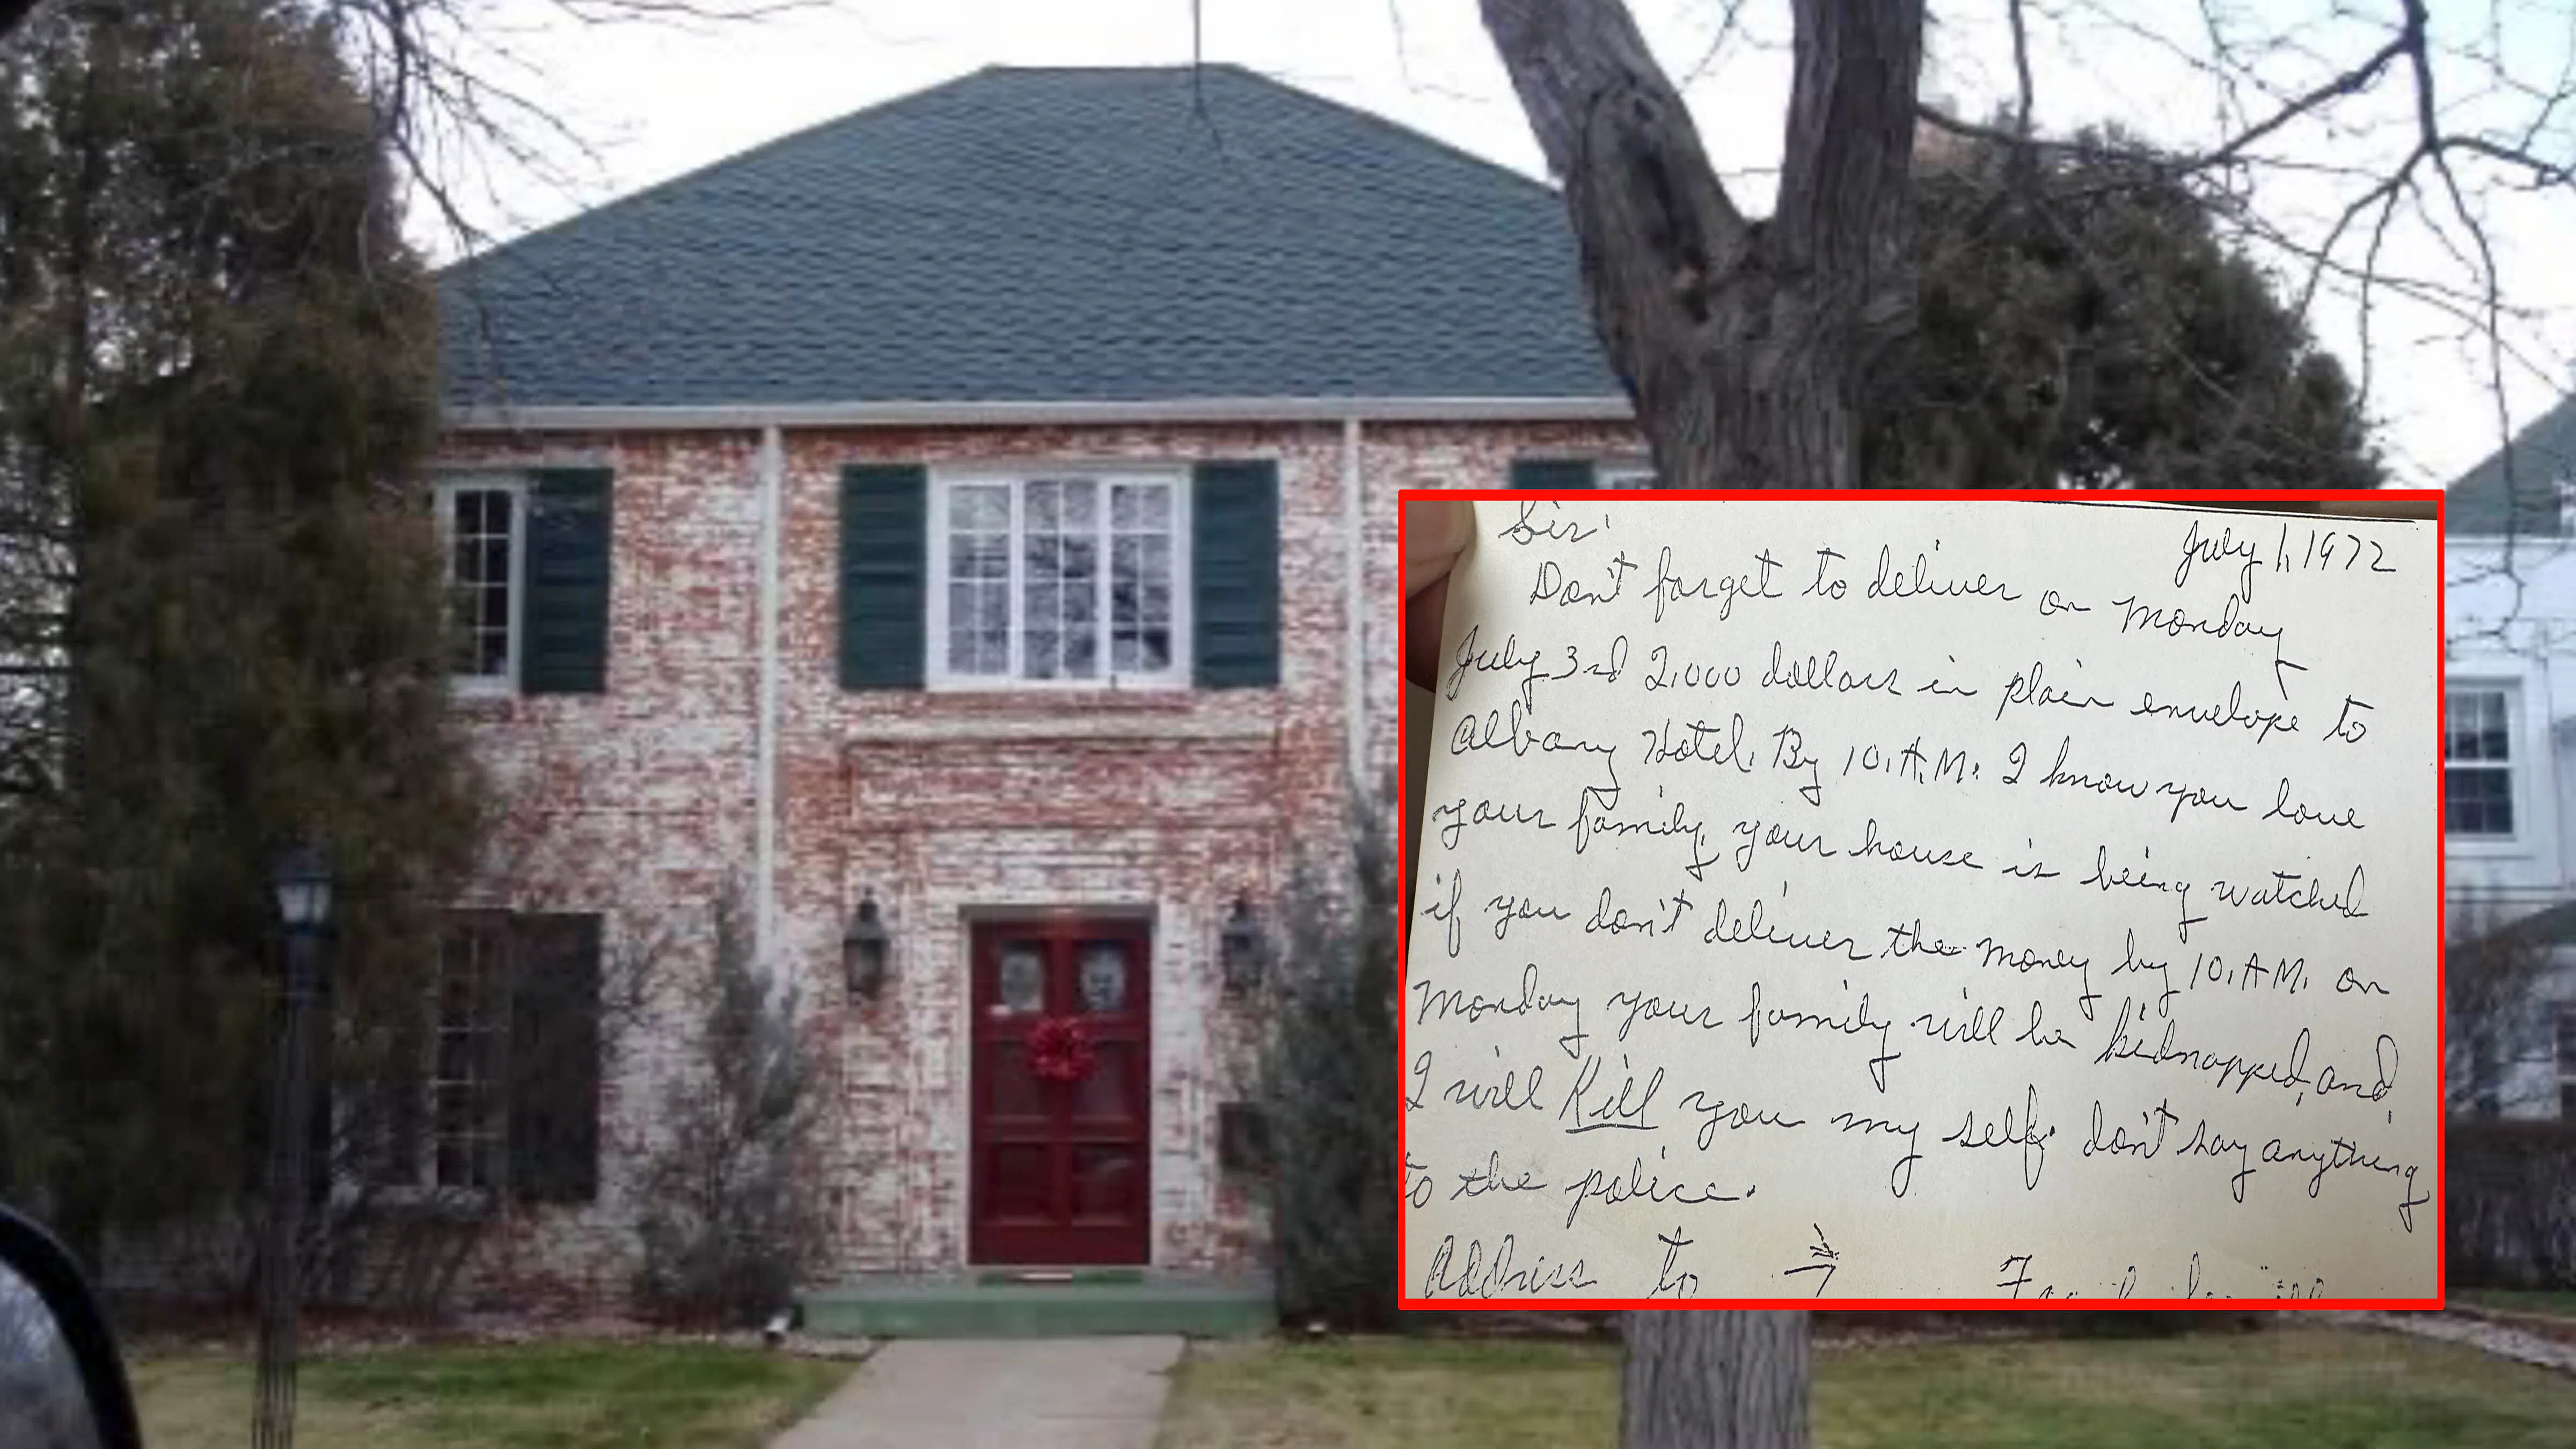 Sir,
July 1, 1972
Don't forget to deliver on Monday
July 3rd 2,000 dollars in plain envelope to
Albany Hotel. By 10. A.M. I know you love
your family, your house is being watched
if you don't deliver the money by 10. A.M. on
Monday your family will be kidnapped, and,
I will Kill you my self. don't say anything
to the police.
Address to →